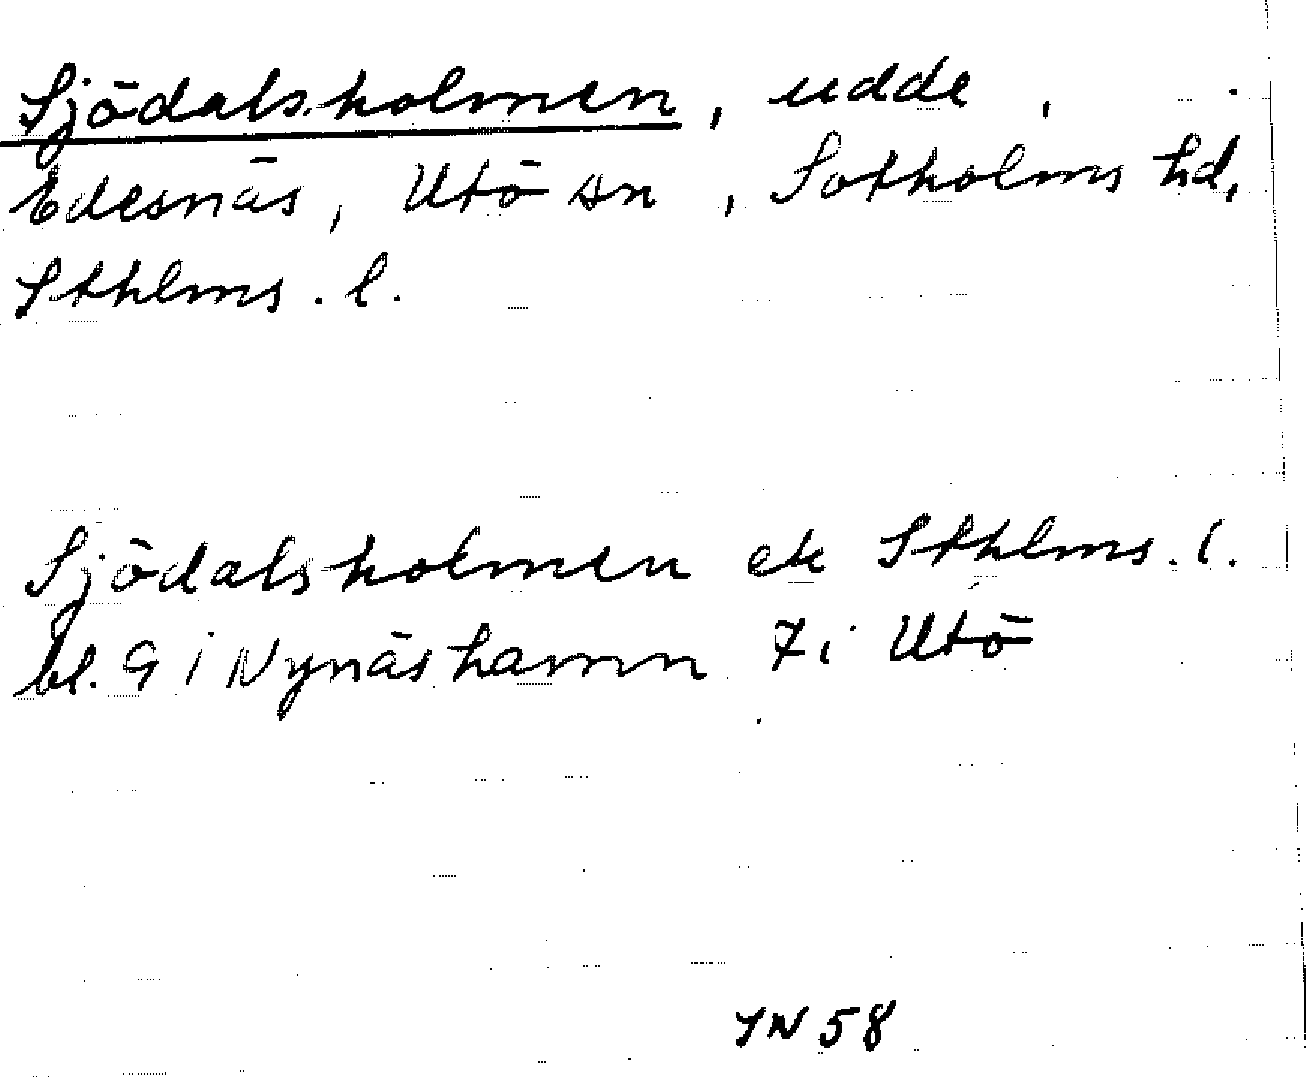 Sjödalsholmen, udde,
Edesnäs, Utö sn, Sotholms hd,
Sthlms. l.
Sjödalsholmen ek Sthlms. l.
bl. 9 i Nynäshamn 7 i Utö
YN 58